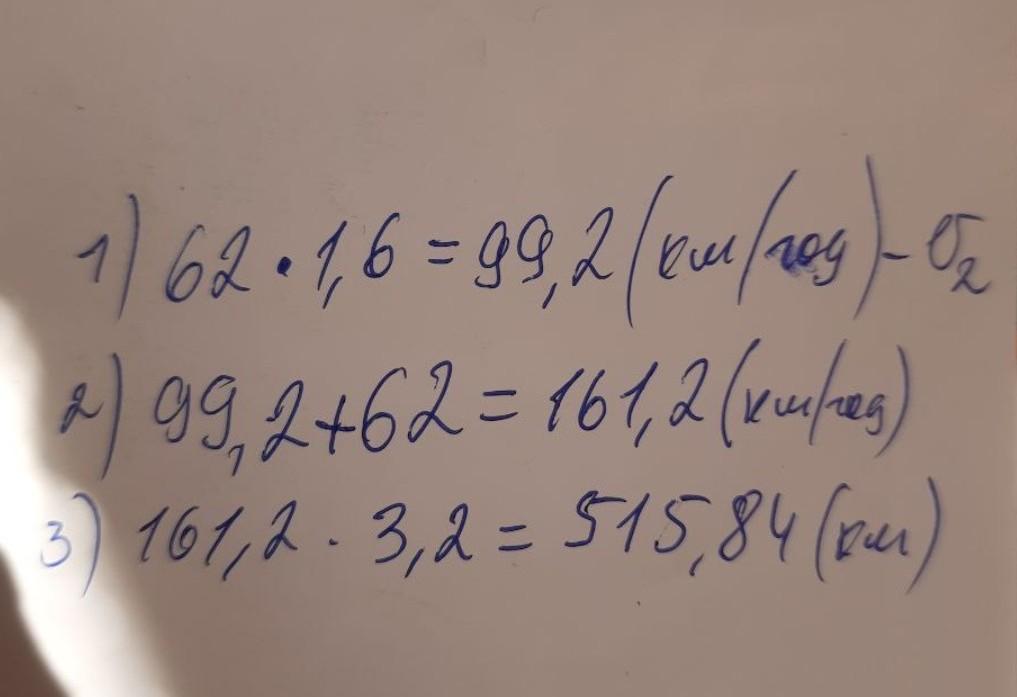 1) 62 · 1,6 = 99,2 (км/год) - v₂
2) 99,2 + 62 = 161,2 (км/год)
3) 161,2 · 3,2 = 515,84 (км)